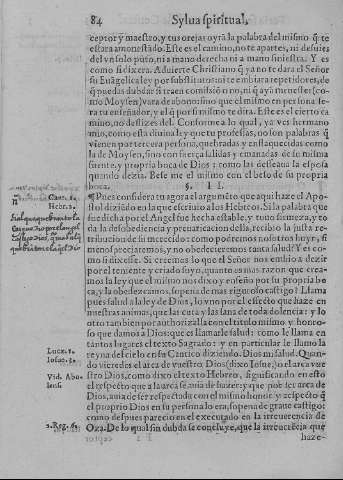 84 Sylua spiritual,
ceptor y maestro, y tus orejas oyrã la palabra del mismo q̃ te
estara amonestãdo. Este es el camino, no te apartes, ni desuies
del vn solo pũto, ni a mano derecha ni a mano siniestra. Y es
como si dixera. Aduierte Christiano q̃ ya no te dara el Señor
su Euãgelica ley por substitutos: ni te embiara repetidores, de
q̃ puedas dubdar si traen comisiõ o no, ni q̃ ayã menester (co
mo Moysen) vara de abono: sino que el mismo en persona se
ra tu enseñador, y el q̃ por si mismo te dira. Este es el cierto ca
mino, no deslizes del. Conforme a lo qual, ya ves hermano
mio, como esta diuina ley que tu professas, no son palabras q̃
vienen por tercera persona, quebradas y enflaquecidas como
la de Moysen, sino con fuerça salidas y emanadas de su misma
fuente, y propria boca de Dios: como las desseaua la esposa
quando dezia. Bese me el mismo con el beso de su propria
boca.
§. II.
Hebr. 2.
¶ Pues considera tu agora el argumẽto que aqui haze el Apos
tol diziẽdo en la que escriuio a los Hebreos. Si la palabra que
fue dicha por el Angel fue hecha estable, y tuuo firmeza, y to
da la desobediencia y preuaricacion della, recibio la justa re
tribucion de su merecido: como podremos nosotros huyr, si
menospreciaremos, y no obedecieremos tanta salud? Y es co
mo si dixesse. Si creemos lo que el Señor nos embio a dezir
por el teniente y criado suyo, quanto es mas razon que crea-
mos la ley que el mismo nos dixo y enseño por su propria bo
ca, y la obedezcamos, so pena de mas riguroso castigo? Llama
pues salud a la ley de Dios, lo vno por el effecto que haze en
nuestras animas, que las cura y las sana de toda dolencia: y lo
otro tambien por authorizalla con el titulo mismo y honro-
so que damos a Dios: que es llamarle salud: como le llama en
tantos lugares el texto Sagrado: y en particular le llamo la
Lucæ. 1.
reyna del cielo en su Cantico diziendo. Dios mi salud. Quan-
Iosue. 3.
do vieredes el arca de vuestro Dios (dixo Iosue,) o el arca vue
stro Dios, como dixo el texto Hebreo, significando en esto
Vid. Abu-
lens.
el respecto que a la arca se auia de tener: y que por ser arca de
Dios, auia de ser respectada con el mismo honor y respecto q̃
el proprio Dios en su persona lo era, so pena de graue castigo:
como despues parecio en el executado en la irreuerencia de
2. Reg. 6.
Oza. De lo qual sin dubda se concluye, que la irreuerẽcia que
haze-